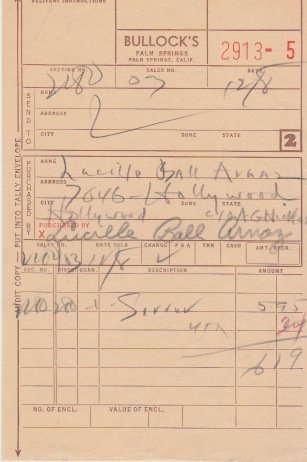 DELIVERY INSTRUCTIONS
BULLOCK'S
PALM SPRINGS
PALM SPRINGS, CALIF.
2913-5
SECTION NO. SALES NO. DATE
2180 03 12/8
SEND TO
NAME
ADDRESS
CITY ZONE STATE
2
PURCHASED BY
NAME
Lucille Ball Arnaz
ADDRESS
7646-Hollywood
CITY ZONE STATE
Hollywood
PURCHASED BY
X Lucille Ball Arnaz
SALES NO. DATE SOLD CHARGE PBA TRM CASH AMT. REGD.
SEC. NO. DISST. QUAN. DESCRIPTION AMOUNT
280-1- 595
24
619
NO. OF ENCL. VALUE OF ENCL.
AUDIT COPY PUT INTO TALLY ENVELOPE